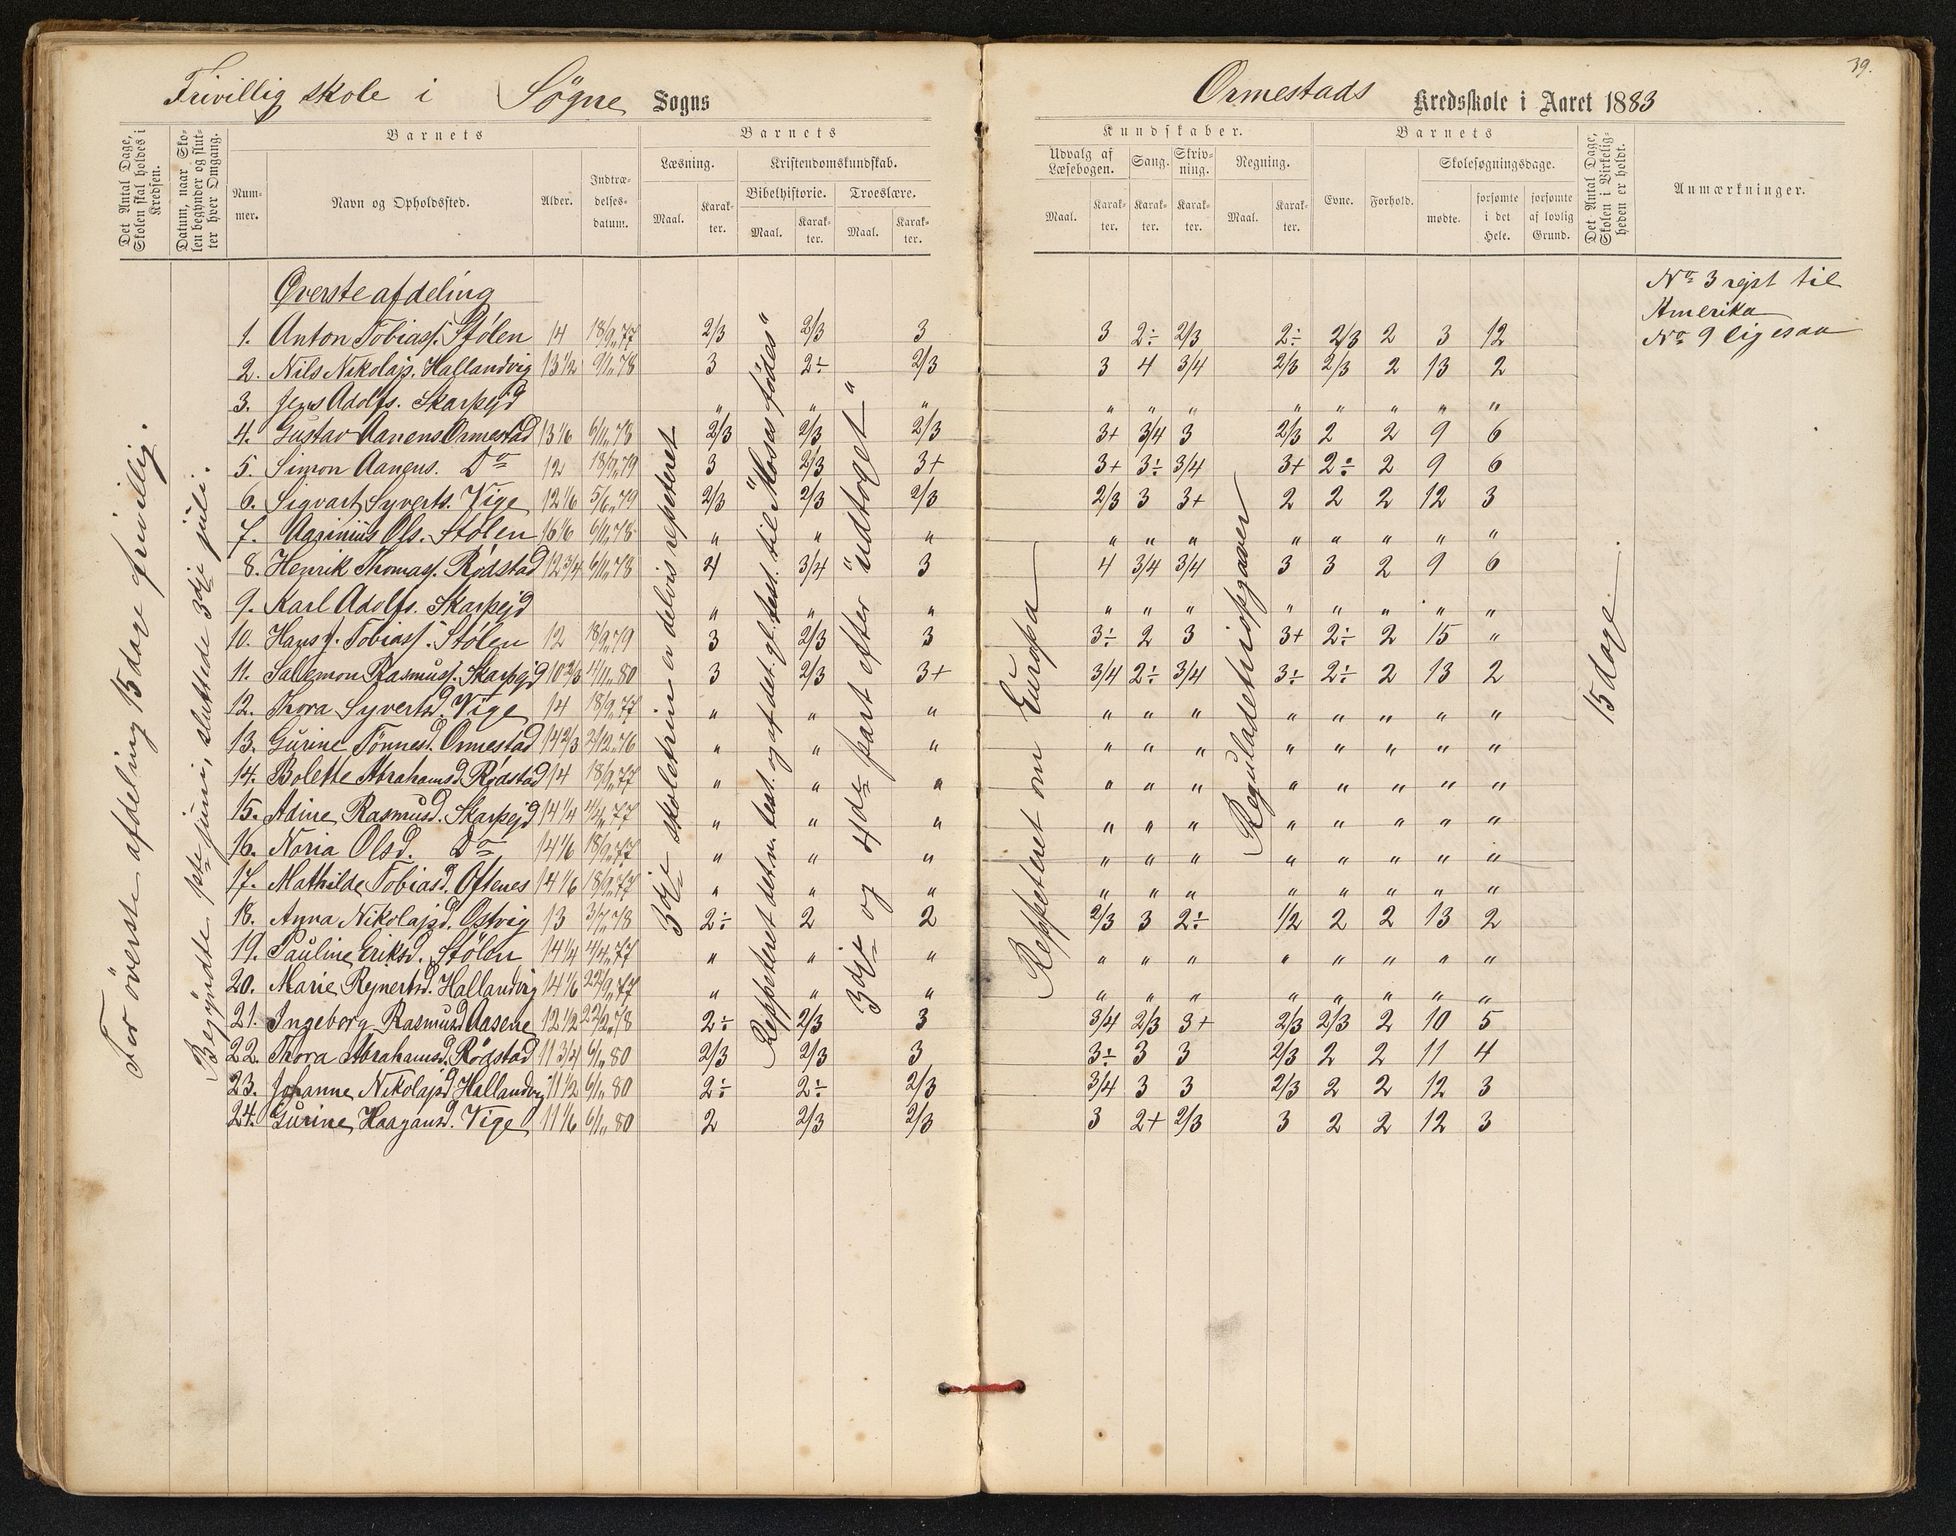 39.
Frivillig skole i Søgne Sogns
Ormestads Kredsskole i Aaret 1883
Det Antal Dage, Skolen skal holdes i Kredsen.
Datum, naar Skolen begynder og slutter hver Omgang.
Barnets
Nummer.
Navn og Opholdssted.
Alder.
Indtrædelsesdatum.
Barnets
Læsning.
Maal.
Karakter.
Kristendomskundskab.
Bibelhistorie.
Maal.
Karakter.
Troeslære.
Maal.
Karakter.
Kundskaber.
Udvalg af Læsebogen.
Maal.
Karakter.
Sang.
Karakter.
Skrivning.
Karakter.
Regning.
Maal.
Karakter.
Barnets
Evne.
Forhold.
Skolesøgningsdage.
mødte.
forsømte i det Hele.
forsømte af lovlig Grund.
Det Antal Dage, Skolen i Virkeligheden er holdt.
Anmærkninger.
For överste afdeling 15 dage frivillig.
Begyndte 1ste juni, sluttede 3dje juli.
Øverste afdeling
1. Anton Tobiass. Stölen 14 18/9 77 2/3 2/3 3 3 2÷ 2/3 2÷ 2/3 2 3 12
2. Nils Nikolajs. Hallandvig 13 1/2 9/1 78 3 2÷ 2/3 3 4 3/4 2/3 2/3 2 13 2
3. Jens Adolfs. Skarpejd " " " " " " " " " " "
4. Gustav Aanens Ormestad 13 1/6 6/11 78 2/3 2/3 2/3 3+ 3/4 3 2/3 2 2 9 6
5. Simon Aanens. Do 12 18/9 79 3 2/3 3+ 3+ 3÷ 3/4 3+ 2÷ 2 9 6
6. Sigvart Syverts. Vige 12 1/6 5/6 79 2/3 2/3 2/3 2/3 3 3+ 2 2 2 12 3
7. Ols. Stölen 16 1/6 6/11 78 " " " " " " " " " " "
8. Henrik Thomass. Rödstad 12 3/4 6/11 78 4 3/4 3 4 3/4 3/4 3 3 2 9 6
9. Karl Adolfs. Skarpejd " " " " " " " " " " "
10. Hans J. Tobiass. Stölen 12 18/9 79 3 2/3 3 3÷ 2 3 3+ 2÷ 2 15 "
11. Salemon Rasmuss. Skarpejd 10 2/3 4/11 80 3 2/3 3+ 3/4 2÷ 3/4 3÷ 2÷ 2 13 2
12. Thora Syvertsd. Vige 14 18/9 77 " " " " " " " " " " "
13. Gurine Tönnesd. Ormestad 14 2/3 2/12 76 " " " " " " " " " " "
14. Bolette Abrahamsd. Rödstad 14 18/9 77 " " " " " " " " " " "
15. Adine Rasmusd. Skarpejd 14 1/4 4/4 77 " " " " " " " " " " "
16. Noria Olsd. Do 14 1/6 18/9 77 " " " " " " " " " " "
17. Mathilde Tobiasd. Oftenes 14 1/6 18/9 77 " " " " " " " " " " "
18. Anna Nikolajsd. Östvig 13 3/7 78 2÷ 2 2 2/3 3 2÷ 1/2 2 2 13 2
19. Pauline Eriksd. Stölen 14 1/4 4/4 77 " " " " " " " " " " "
20. Marie Rejnertsd. Hallandvig 14 1/6 22/9 77 " " " " " " " " " " "
21. Ingeborg Rasmusd Aasene 12 1/2 22/2 78 2÷ 2/3 3 3/4 2/3 3+ 2/3 2/3 2 10 5
22. Thora Abrahamsd. Rödstad 11 3/4 6/11 80 2/3 2/3 3 3÷ 3 3 2/3 2 2 11 4
23. Johanne Nikolajsd Hallandvig 11 1/2 6/11 80 2÷ 2÷ 2/3 3/4 3 3 2/3 2 2 12 3
24. Gurine Haagansd. Vige 11 1/6 6/11 80 2 2/3 2/3 3 2+ 2/3 3 2 2 12 3
3dje skoletrin er delvis repeteret
Reppeteret det n. test. og af det gl. test. til "Moses födes"
3dje og 4de part efter "udtoget"
Reppeteret om Europa
Reguladetriopgaver
15 dage.
No 3 rejst til
Amerika
No 9 ligesaa